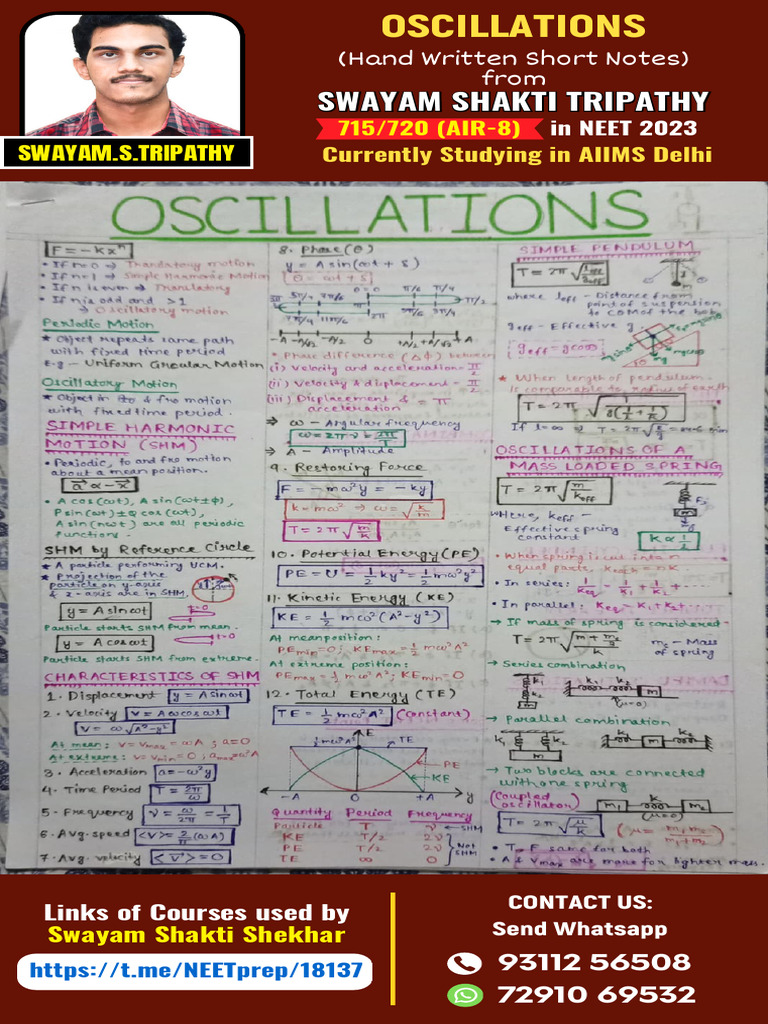 OSCILLATIONS
(Hand Written Short Notes)
from
SWAYAM SHAKTI TRIPATHY
715/720 (AIR-8) in NEET 2023
Currently Studying in AIIMS Delhi
SWAYAM.S.TRIPATHY
OSCILLATIONS
F = -kxⁿ
• If n=0 ⇒ Translatory motion
• If n=1 ⇒ Simple Harmonic Motion
• If n is even ⇒ Translatory
• If n is odd and >1
⇒ Oscillatory motion
Periodic Motion
★ Object repeats same path
with fixed time period
E.g - Uniform Circular Motion
Oscillatory Motion
★ Object in to & fro motion
with fixed time period.
SIMPLE HARMONIC
MOTION (SHM)
• Periodic, to and fro motion
about a mean position.
a⃗ α -x⃗
• A cos(ωt), A sin(ωt±φ),
P sin(ωt) ± Q cos(ωt),
A sin(nωt) are all periodic
functions.
SHM by Reference Circle
★ A particle performing UCM.
★ Projection of the
particle on y-axis
& x-axis are in SHM.
y = A sinωt
t=0
Particle starts SHM from mean.
y = A cosωt
t=0
Particle starts SHM from extreme.
CHARACTERISTICS OF SHM
1. Displacement y = A sinωt
2. Velocity v = Aω cosωt
v = ω√A²-y²
At mean: v = vmax = ωA; a=0
At extreme: v = vmin = 0; amax = ω²A
3. Acceleration a = -ω²y
4. Time Period T = 2π/ω
5. Frequency ν = ω/2π = 1/T
6. Avg. speed <v> = 2/π (ωA)
7. Avg. velocity <v⃗> = 0
8. Phase (θ)
y = A sin(ωt + δ)
θ = ωt + δ
• Phase difference (Δφ) between
(i) Velocity and acceleration = π/2
(ii) Velocity & displacement = π/2
(iii) Displacement & = π
acceleration
⇒ ω - Angular frequency
⇒ A - Amplitude
9. Restoring Force
F = -mω²y = -ky
k = mω² ⇒ ω = √k/m
T = 2π√m/k
10. Potential Energy (PE)
PE = U = 1/2 ky² = 1/2 mω²y²
11. Kinetic Energy (KE)
KE = 1/2 mω² (A²-y²)
At mean position:
PEmin = 0; KEmax = 1/2 mω²A²
At extreme position:
PEmax = 1/2 mω²A²; KEmin = 0
12. Total Energy (TE)
TE = 1/2 mω²A² (Constant)
E
1/2 mω²A²
TE
PE
KE
-A 0 +A y
Quantity Period Frequency
Particle T ν ← SHM
KE T/2 2ν
PE T/2 2ν
TE ∞ 0
Not SHM
SIMPLE PENDULUM
T = 2π√leff/geff
where leff - Distance from
point of suspension
to COM of the bob
geff - Effective g
geff = g cosθ
★ When length of pendulum
is comparable to radius of earth
OSCILLATIONS OF A
MASS LOADED SPRING
T = 2π√m/keff
Where, keff -
Effective spring
constant
k α 1/l
• When spring is cut into n
equal parts, keach = nk
• In series: 1/keq = 1/k1 + 1/k2 + ....
• In parallel: keq = k1+k2+..
→ If mass of spring is considered-
ms - Mass
of spring
→ Series combination
k1
k2
m
k1 k2 m
(μ=0)
→ Parallel combination
k1 k2
m
k1 m k2
→ Two blocks are connected
with one spring
(Coupled
oscillator)
m1 k m2
(μ=0)
T = 2π√μ/k
(μ = m1m2/m1+m2)
• T, F same for both
• A & vmax are more for lighter mass.
Links of Courses used by
Swayam Shakti Shekhar
https://t.me/NEETprep/18137
CONTACT US:
Send Whatsapp
93112 56508
72910 69532